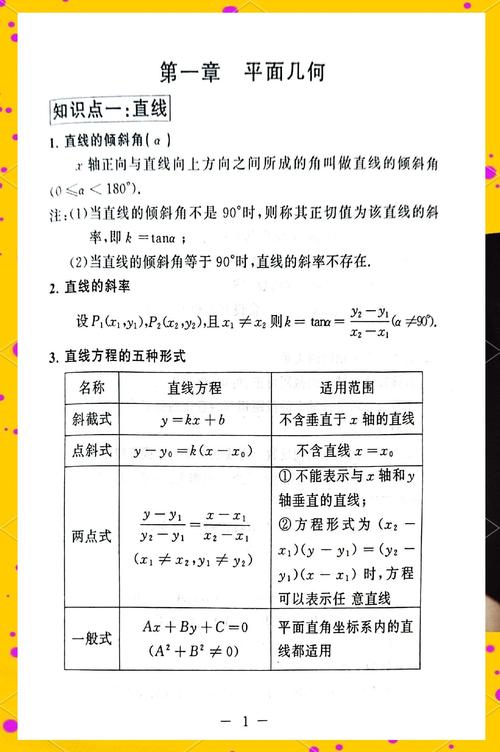 第一章 平面几何
知识点一:直线
1. 直线的倾斜角(α)
x 轴正向与直线向上方向之间所成的角叫做直线的倾斜角
(0≤α<180°).
注:(1)当直线的倾斜角不是 90°时,则称其正切值为该直线的斜
率,即 k=tanα;
(2)当直线的倾斜角等于 90°时,直线的斜率不存在.
2. 直线的斜率
设 P₁(x₁,y₁),P₂(x₂,y₂),且 x₁≠x₂ 则 k=tanα=(y₂-y₁)/(x₂-x₁)(α≠90°).
3. 直线方程的五种形式
名称 直线方程 适用范围
斜截式 y=kx+b 不含垂直于 x 轴的直线
点斜式 y-y₀=k(x-x₀) 不含直线 x=x₀
两点式
(y-y₁)/(y₂-y₁)=(x-x₁)/(x₂-x₁)
(x₁≠x₂,y₁≠y₂)
① 不能表示与 x 轴和 y
轴垂直的直线;
②方程形式为 (x₂-
x₁)(y-y₁)=(y₂-
y₁)(x-x₁) 时,方程
可以表示任 意直线
一般式
Ax+By+C=0
(A²+B²≠0)
平面直角坐标系内的直
线都适用
— 1 —